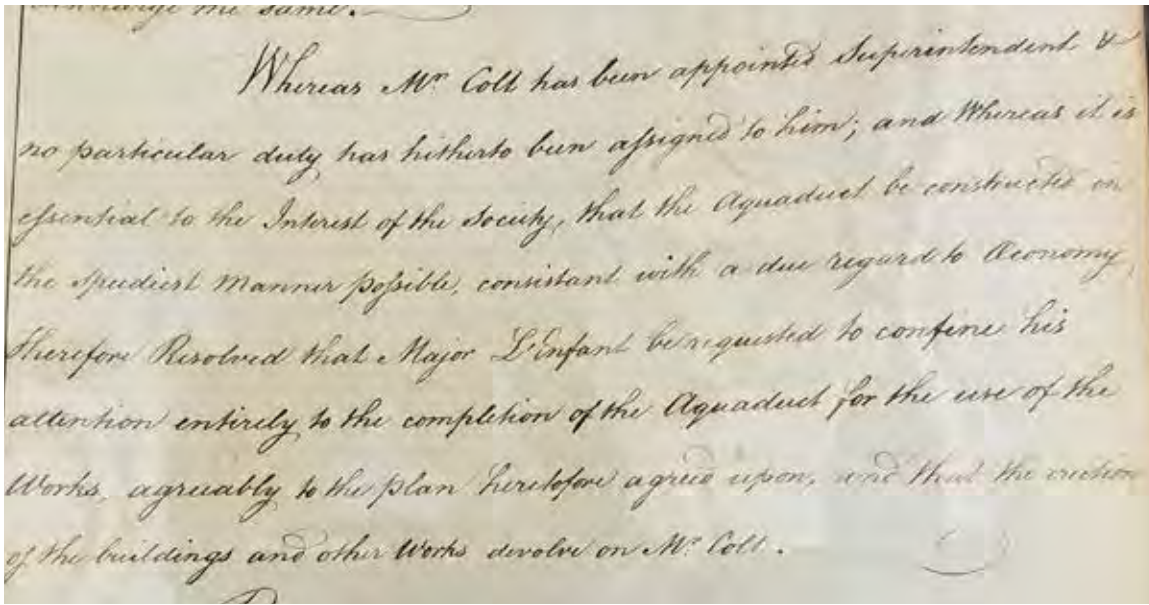 the same.
Whereas Mr. Colt has been appointed Superintendent &
no particular duty has hitherto been assigned to him; and Whereas it is
essential to the Interest of the Society, that the Aquaduct be constructed in
the speediest Manner possible, consistant with a due regard to Œconomy,
therefore Resolved that Major L'Enfant be requested to confine his
attention entirely to the completion of the Aquaduct for the use of the
Works, agreeably to the plan heretofore agreed upon, and that the erection
of the buildings and other Works devolve on Mr. Colt.